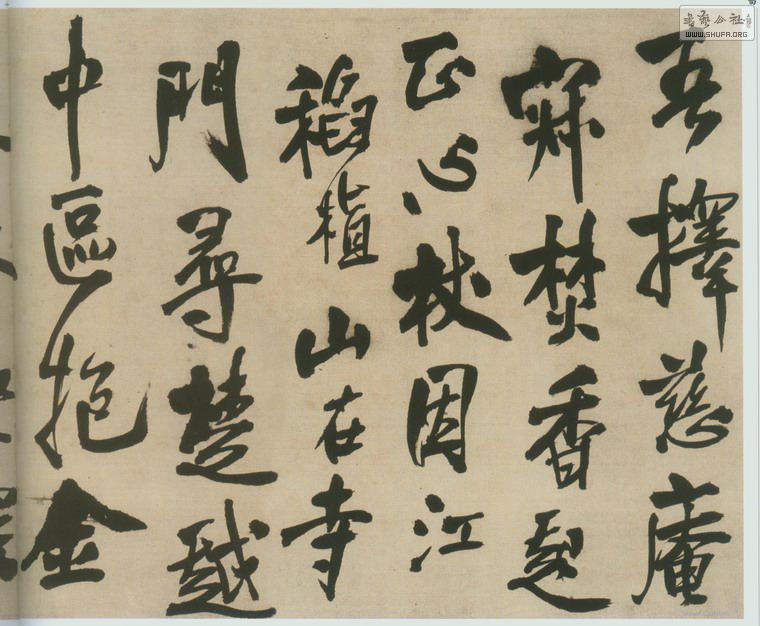 吾擇慈庵
寐焚香起
正心杖因江
稻植山在寺
門尋楚越
中區抱金
書法公社
WWW.SHUFA.ORG